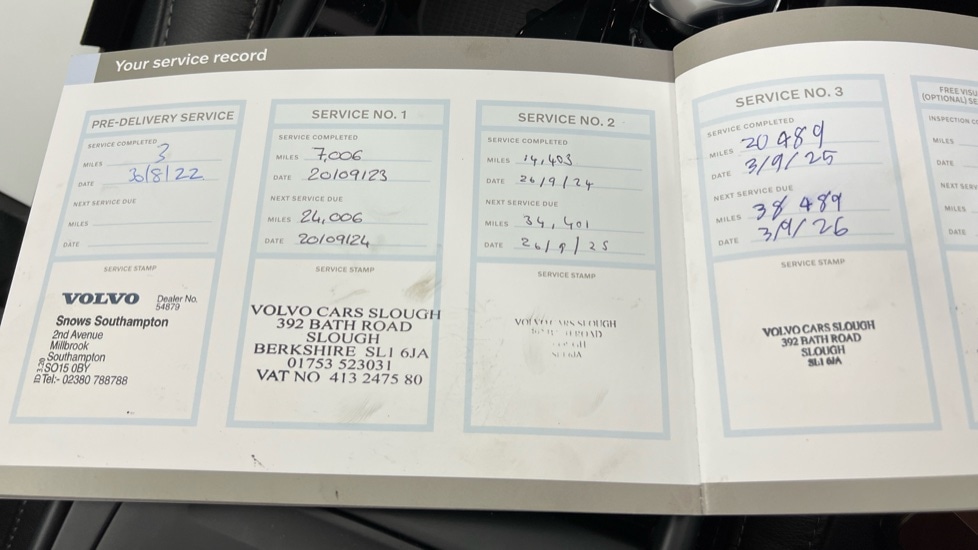 Your service record
PRE-DELIVERY SERVICE
SERVICE COMPLETED
MILES 3
DATE 30/8/22
NEXT SERVICE DUE
MILES
DATE
SERVICE STAMP
VOLVO Dealer No.
54879
Snows Southampton
2nd Avenue
Millbrook
Southampton
SO15 0BY
Tel:- 02380 788788
SERVICE NO. 1
SERVICE COMPLETED
MILES 7,006
DATE 20/09/23
NEXT SERVICE DUE
MILES 24,006
DATE 20/09/24
SERVICE STAMP
VOLVO CARS SLOUGH
392 BATH ROAD
SLOUGH
BERKSHIRE SL1 6JA
01753 523031
VAT NO 413 2475 80
SERVICE NO. 2
SERVICE COMPLETED
MILES 14,403
DATE 26/9/24
NEXT SERVICE DUE
MILES 34,401
DATE 26/9/25
SERVICE STAMP
SLOUGH
SERVICE NO. 3
SERVICE COMPLETED
MILES 20 489
DATE 3/9/25
NEXT SERVICE DUE
MILES 38 489
DATE 3/9/26
SERVICE STAMP
VOLVO CARS SLOUGH
392 BATH ROAD
SLOUGH
SL1 6JA
FREE VISU
(OPTIONAL) SE
INSPECTION C
MILES
DATE
NEXT SERV
MILES
DATE